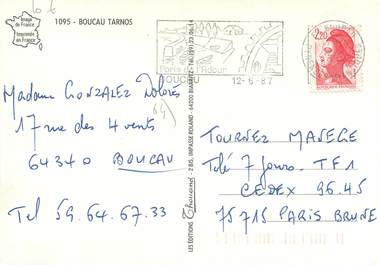 1095 - BOUCAU TARNOS
Image
de France
Imprimée
en France
Madame GONZALEZ Dolorès
64
17 rue des 4 vents
64340 BOUCAU
Tel 59.64.67.33
LES EDITIONS Thouand - 2 BIS, IMPASSE ROLAND - 64200 BIARRITZ - Tél. (59) 23.06.14
BOUCAU
12-6-87
2,20
TOURNEZ MANEGE
Télé 7 Jours - TF1
CEDEX 96.45
75715 PARIS BRUNE